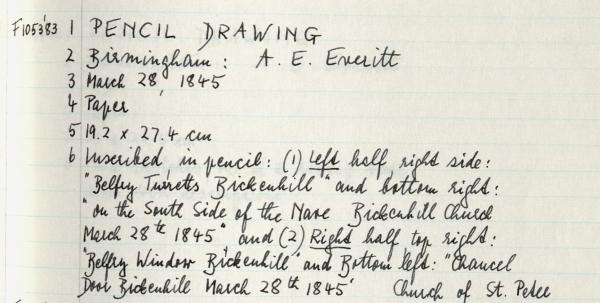 F1053'83 1 PENCIL DRAWING
2 Birmingham: A. E. Everitt
3 March 28, 1845
4 Paper
5 19.2 x 27.4 cm
6 Inscribed in pencil: (1) Left half, right side:
"Belfry Turretts Bickenhill" and bottom right:
"on the South Side of the Nave Bickenhill Church
March 28th 1845" and (2) Right half top right:
"Belfry Window Bickenhill" and Bottom left: "Chancel
Door Bickenhill March 28th 1845" Church of St. Peter